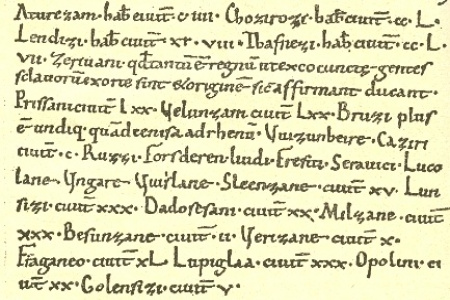 Aturezani · hab̄ ciuit̄ · c · iiii · Chozirozi · hab̄ ciuit̄ · cc · L ·
Lendizi · hab̄ ciuit̄ · xc · viii · Thafnezi · hab̄ ciuit̄ · cc · L ·
vii · Zeriuani qd̄ tantū ē regnū ut ex eo cuncte gentes
sclauorū exorte sint & origine sic̄ affirmant ducant ·
Prissani ciuit̄ Lxx · Velunzani ciuit̄ Lxx · Bruzi plus
ē undiq quā de enisa ad rhenū · Vuizunbeire · Caziri
ciuit̄ · c · Ruzzi · Forsderen liudi · Fresiti · Serauici · Luco
lane · Vngare · Vuislane · Sleenzane ciuit̄ xv · Lun
sizi ciuit̄ xxx · Dadosesani · ciuit̄ xx · Milzane · ciuit̄
xxx · Besunzane · ciuit̄ · ii · Verizane · ciuit̄ x ·
Fraganeo · ciuit̄ xL · Lupiglaa · ciuit̄ xxx · Opolini · ci
uit̄ xx · Golensizi · ciuit̄ v ·